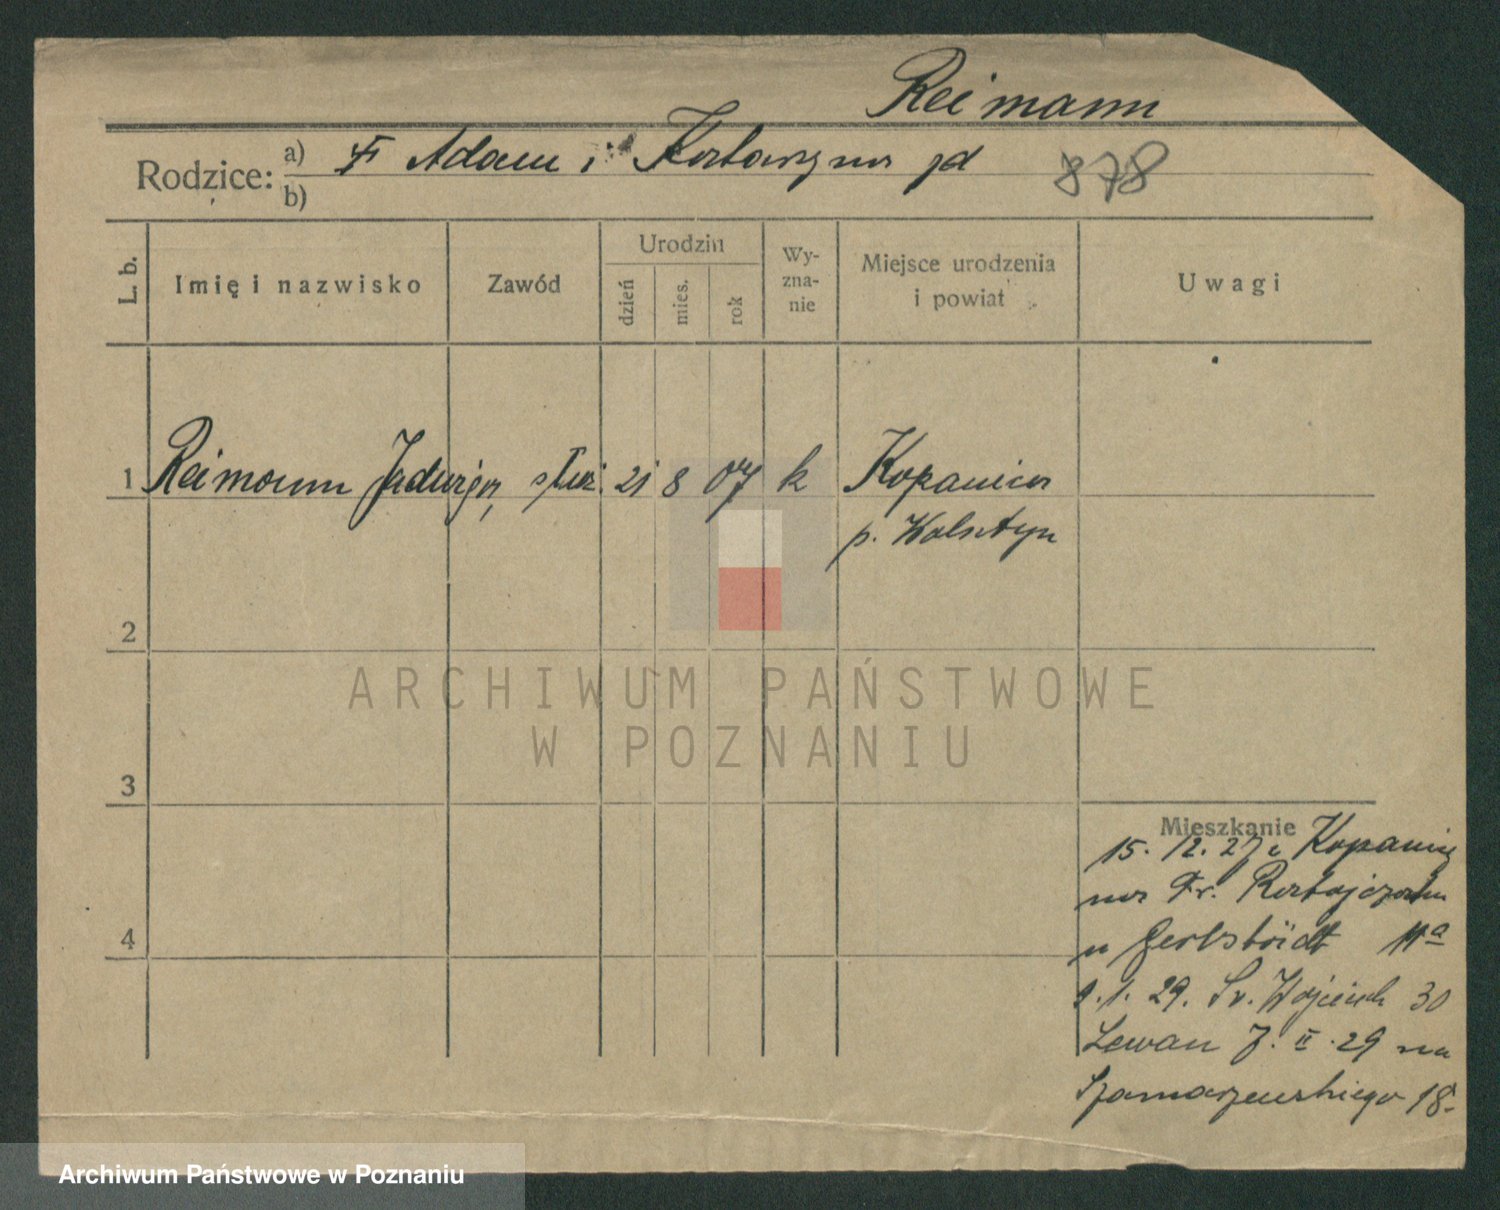 Reimann
Rodzice: a) Adam i Katarzyna jd 878
b)
L. b.
Imię i nazwisko
Zawód
Urodzin
dzień
mies.
rok
Wy-
zna-
nie
Miejsce urodzenia
i powiat
Uwagi
1 Reimann Jadwiga, służ. 21 8 07 k Kopanica
p. Wolsztyn
2
ARCHIWUM PAŃSTWOWE
W POZNANIU
3
Mieszkanie
15. 12. 27 z Kopanicy
na Fr. Ratajczaka
u Gerbstädt 11a
9. 1. 29. Św. Wojciech 30
4
Lewan 7. II. 29 na
Szamarzewskiego 18.
Archiwum Państwowe w Poznaniu